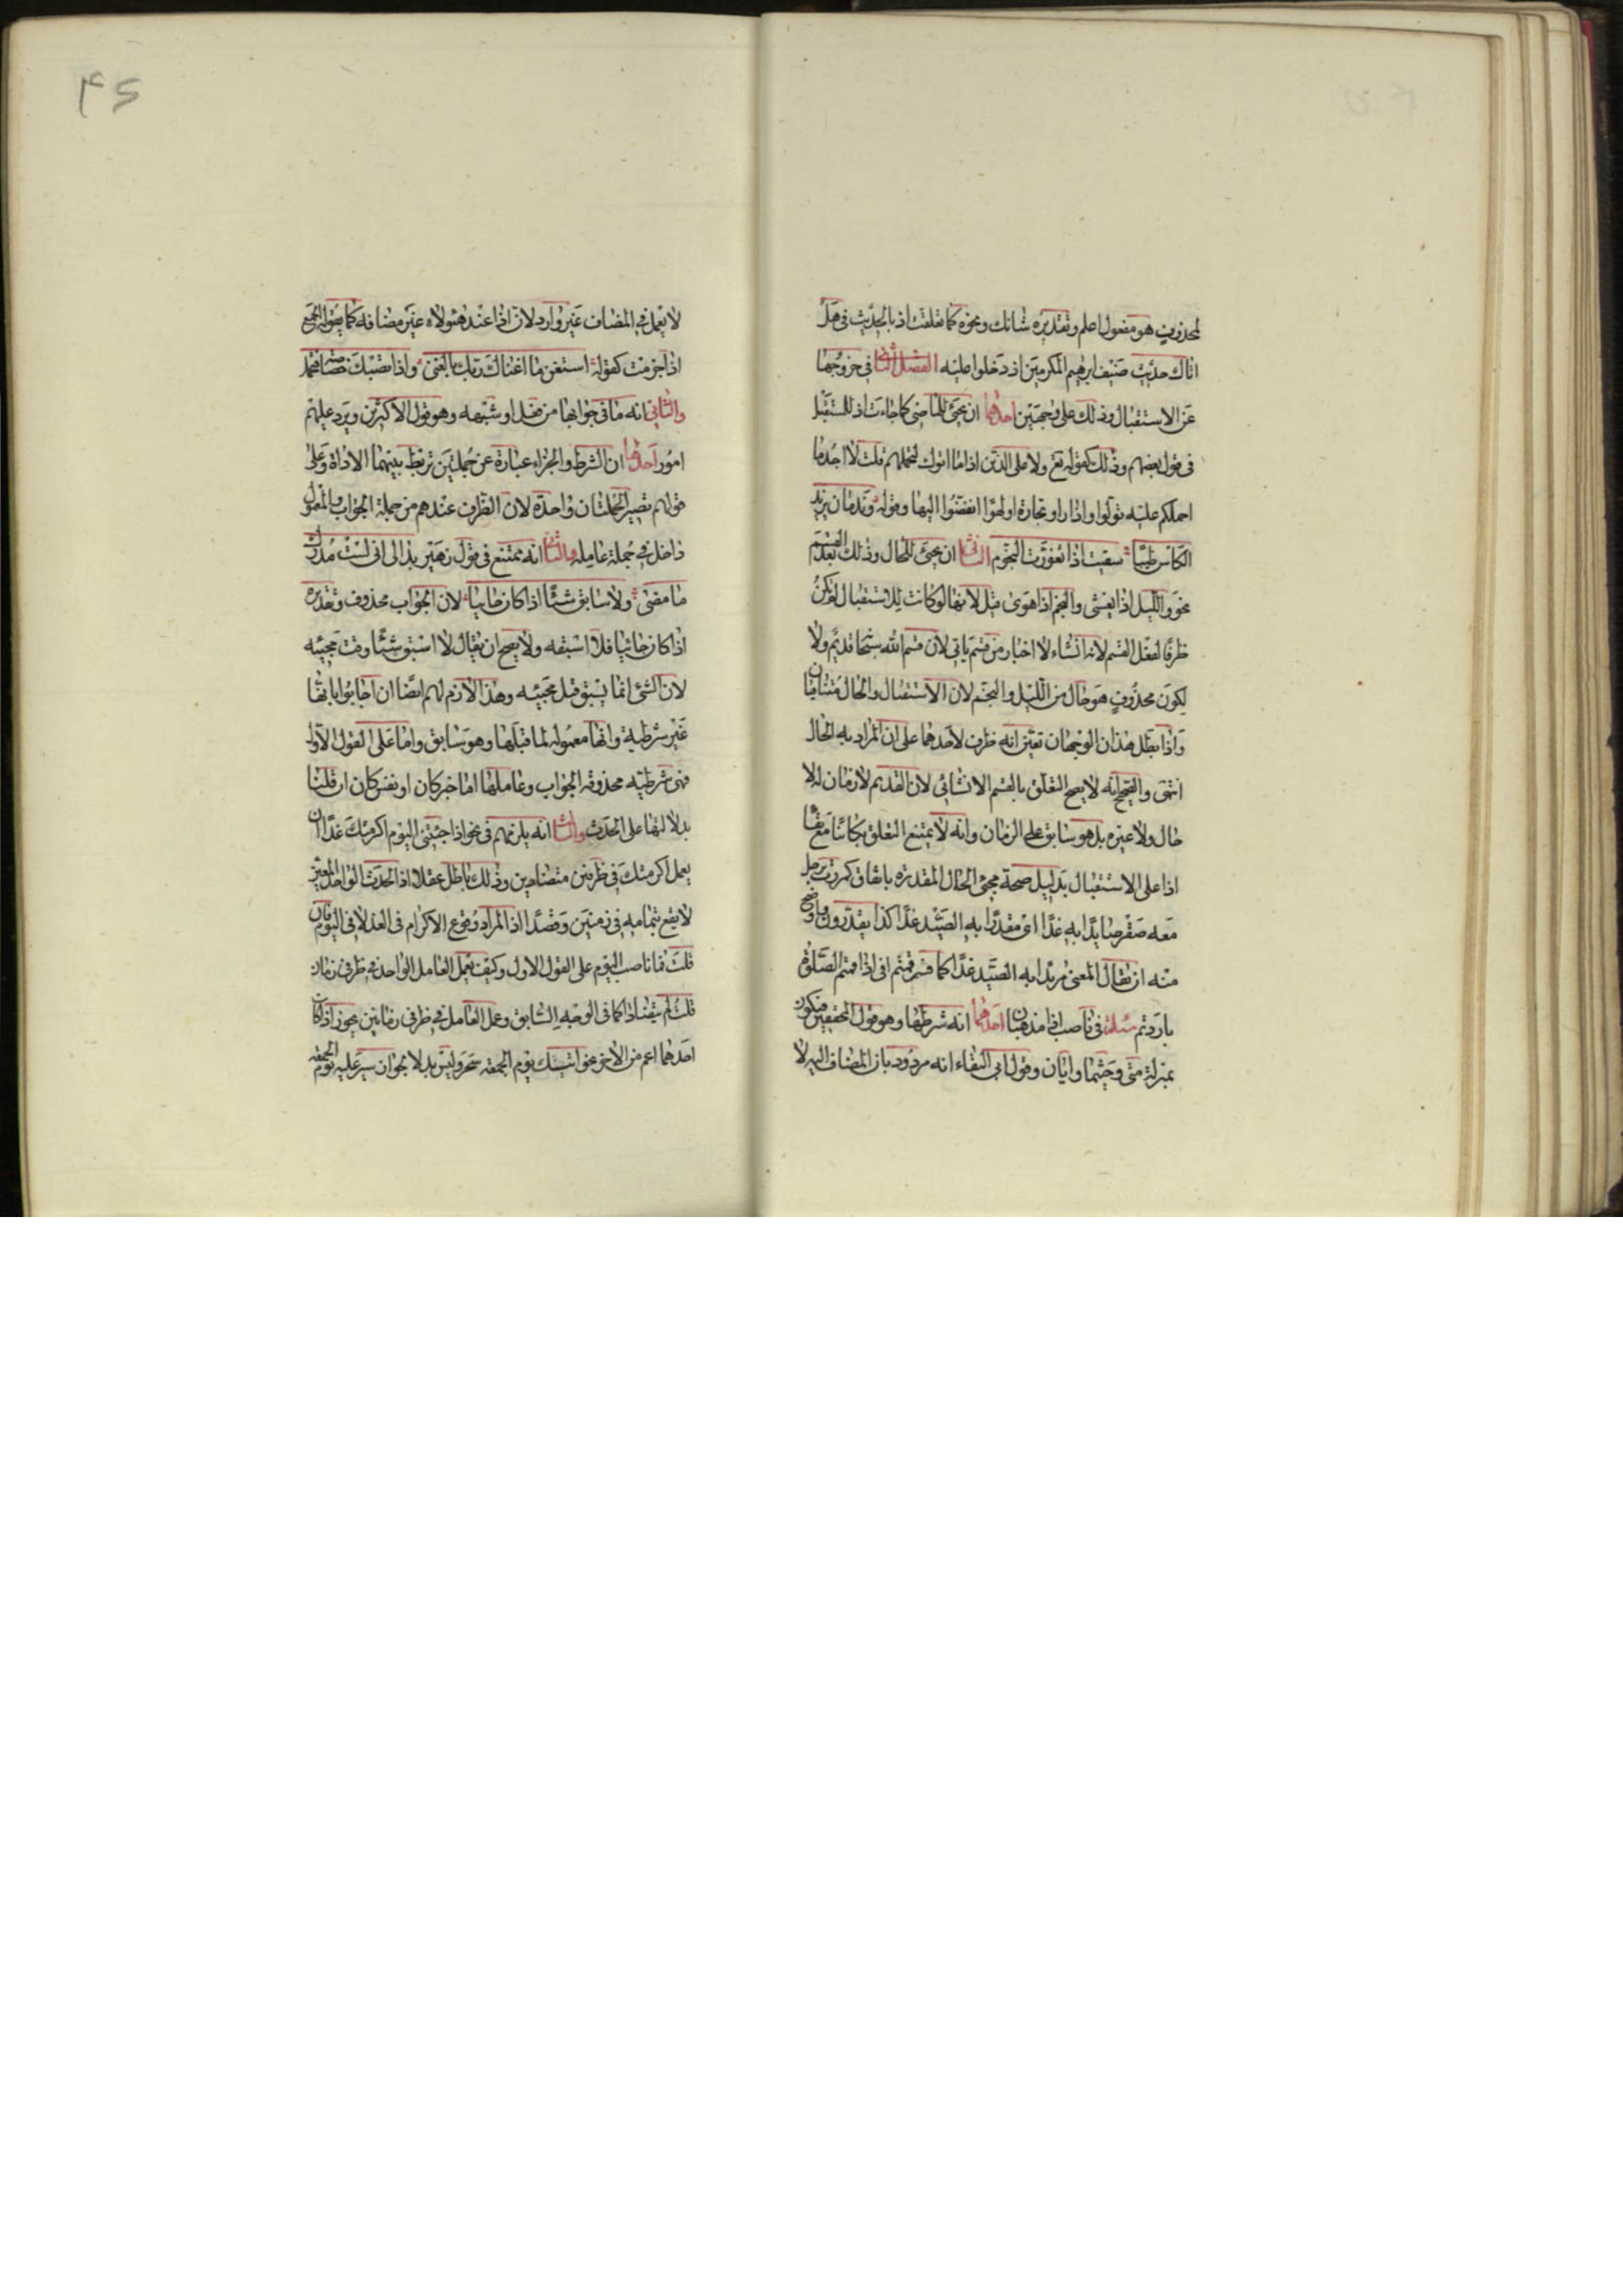 لمحذوف هو مفعول اعلم وتقديره شانك ونحوه كما تعلقت اذ بالحديث في هل
اتاك حديث ضيف ابرهيم المكرمين اذ دخلوا عليه الفصل الثاني في خروجها
عن الاستقبال وذلك على وجهين احدهما ان يجئ للماضي كما جاءت اذ للمستقبل
في قول بعضهم وذلك كقوله تع ولا على الذين اذا ما اتوك لتحملهم قلت لا اجد ما
احملكم عليه تولوا واذا راو تجارة او لهوا انفضوا اليها وقوله وندمان يزيد
الكاس طيبا سقيت اذا تغورت النجوم الثاني ان يجئ للحال وذلك بعد القسم
نحو والليل اذا يغشى والنجم اذا هوى قيل لانها لو كانت للاستقبال لم يكن
ظرفا لفعل القسم لانه انشاء لا اخبار من قسم ياتي لان قسم الله سبحا قديم ولا
لكون محذوف هو حال من الليل والنجم لان الاستقبال والحال متنافيان
واذا بطل هذان الوجهان تعين انه ظرف لاحدهما على ان المراد به الحال
انتهى والصحيح انه لا يصح التعلق بالقسم الانشائي لان القديم لا زمان له لا
حال ولا غيره بل هو سابق على الزمان وانه لا يمتنع التعلق بكائنا مع بقا
اذا على الاستقبال بدليل صحة مجئ الحال المقدرة باتفاق كمررت برجل
معه صقر صايدا به غدا اي مقدرا به الصيد غدا كذا يقدرون واوضح
منه ان يقال المعنى مريدا به الصيد غدا كما فسر قمتم في اذا قمتم الى الصلوة
باردتم مسئلة في ناصب اذا مذهبان احدهما انه شرطها وهو قول المحققين فتكون
بمنزلة متى وحيثما وايان وقول ابي البقاء انه مردود بان المضاف اليه لا
لا يعمل في المضاف غير وارد لان اذا عند هؤلاء غير مضافه كما يقوله الجميع
اذا جزمت كقوله استغن ما اغناك ربك بالغنى واذا تصبك خصاصة فتجمل
والثاني انه ما في جوابها من فعل او شبهه وهو قول الاكثرين ويرد عليهم
امور احدها ان الشرط والجزاء عبارة عن جملتين تربط بينهما الاداة وعلى
قولهم تصير الجملتان واحدة لان الظرف عندهم من جملة الجواب والمعمول
داخل في جملة عامله والثاني انه ممتنع في قول زهير بدا لي اني لست مدرك
ما مضى ولا سابق شيئا اذا كان جائيا لان الجواب محذوف وتقديره
اذا كان جائيا فلا اسبقه ولا يصح ان يقال لا اسبق شيئا وقت مجيئه
لان الشئ انما يسبق قبل مجيئه وهذا لازم لهم ايضا ان اجابوا بانها
غير شرطية وانها معموله لما قبلها وهو سابق واما على القول الاول
فهي شرطيه محذوفة الجواب وعاملها اما خبر كان او نفس كان ان قلنا
بدلالتها على الحدث والثالث انه يلزمهم في نحو اذا جئتني اليوم اكرمتك غدا ان
يعمل اكرمتك في ظرفين متضادين وذلك باطل عقلا اذ الحدث الواحد المعين
لا يقع بتمامه في زمنين وقصدا اذ المراد وقوع الاكرام في الغد لا في اليوم فان
قلت فما ناصب اليوم على القول الاول وكيف يعمل العامل الواحد في ظرفي زمان
قلت لم يتضادا كما في الوجه السابق وعمل العامل في ظرفي زمانين يجوز اذا كان
احدهما اعم من الاخر نحو اتيتك يوم الجمعة سحر وليس بدلا لجواز سير عليه يوم الجمعة